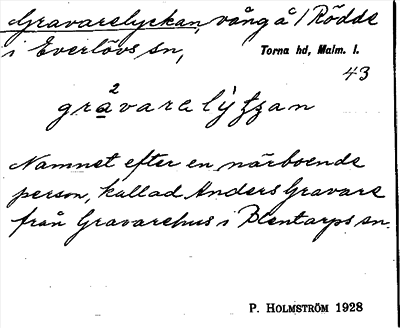 Gravarelyckan, vång å / Rödde
i Everlövs sn, Torna hd, Malm. l.
43
2
gravarelỳţţan
Namnet efter en närboende
person, kallad Anders Gravare
från Gravarehus i Blentarps sn.
P. HOLMSTRÖM 1928